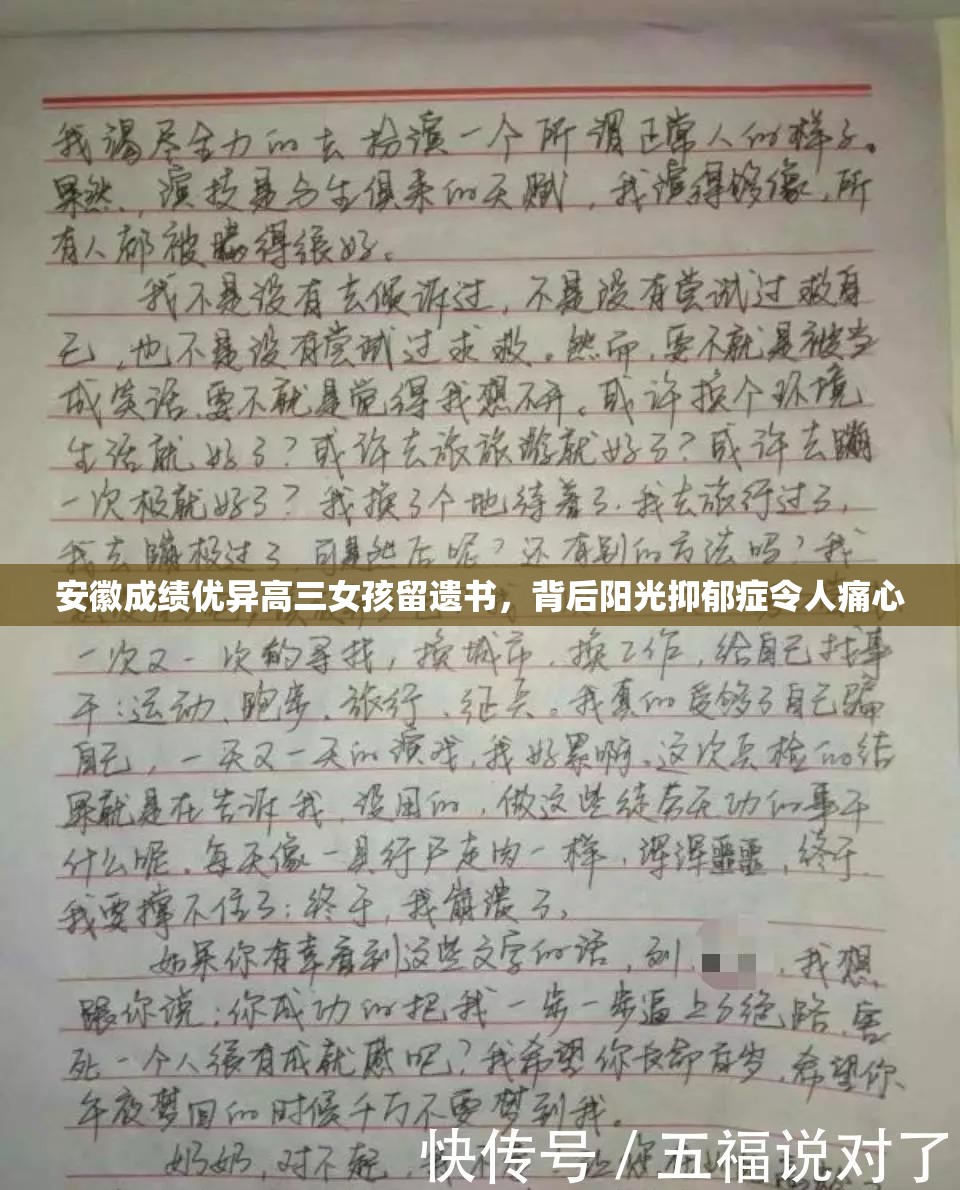 我竭尽全力的去扮演一个所谓正常人的样子。
果然，演技是与生俱来的天赋，我演得够像，所
有人都被瞒得很好。
我不是没有去倾诉过，不是没有尝试过救自
己，也不是没有尝试过求救。然而，要不就是被当
成笑话，要不就是觉得我想不开。或许换个环境
生活就好了？或许去旅旅游就好了？或许去蹦
一次极就好了？我换了个地待着了，我去旅行过了，
我去蹦极过了，可是然后呢？还有别的方法吗？我
安徽成绩优异高三女孩留遗书，背后阳光抑郁症令人痛心
一次又一次的寻找，换城市，换工作，给自己找事
干：运动、跑步、旅行、征兵。我真的受够了自己骗
自己，一天又一天的演戏，我好累啊。这次兵检的结
果就是在告诉我，没用的，做这些徒劳无功的事干
什么呢。每天像一具行尸走肉一样，浑浑噩噩，终于，
我要撑不住了；终于，我崩溃了。
如果你有幸看到这些文字的话，刘，我想
跟你说：你成功的把我一步一步逼上了绝路，害
死一个人很有成就感吧？我希望你长命百岁，希望你
午夜梦回的时候千万不要梦到我。
奶奶，对不起，
快传号／五福说对了